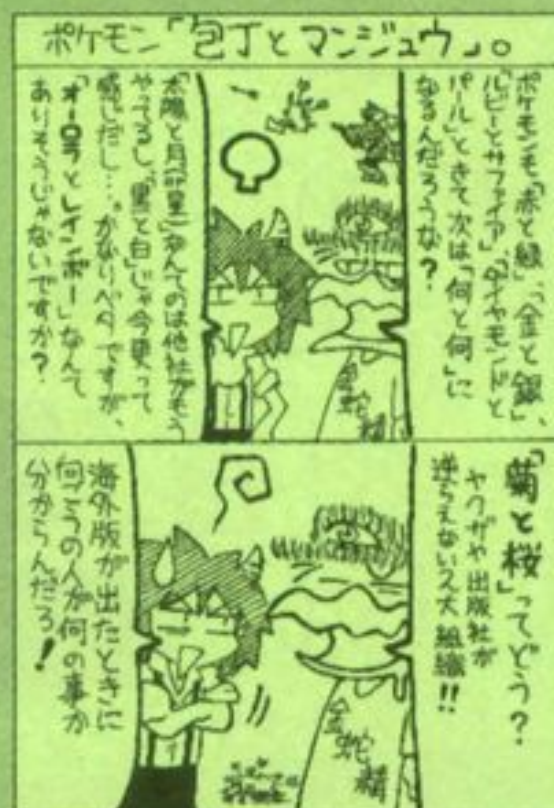 ポケモン「包丁とマンジュウ」。
ポケモンも「赤と緑」、「金と銀」、
「ルビーとサファイア」「ダイヤモンドと
パール」ときて次は「何と何」に
なるんだろうな?
金蛇精
「太陽と月(星)」なんてのは他社がもう
やってるし、「黒と白」じゃ今更って
感じだし…。かなりベタですが、
「オーロラとレインボー」なんて
ありそうじゃないですか?
「菊と桜」ってどう?
ヤクザや出版社が
逆らえない2大組織!!
金蛇精
海外版が出たときに
向こうの人が何の事か
分からんだろ!